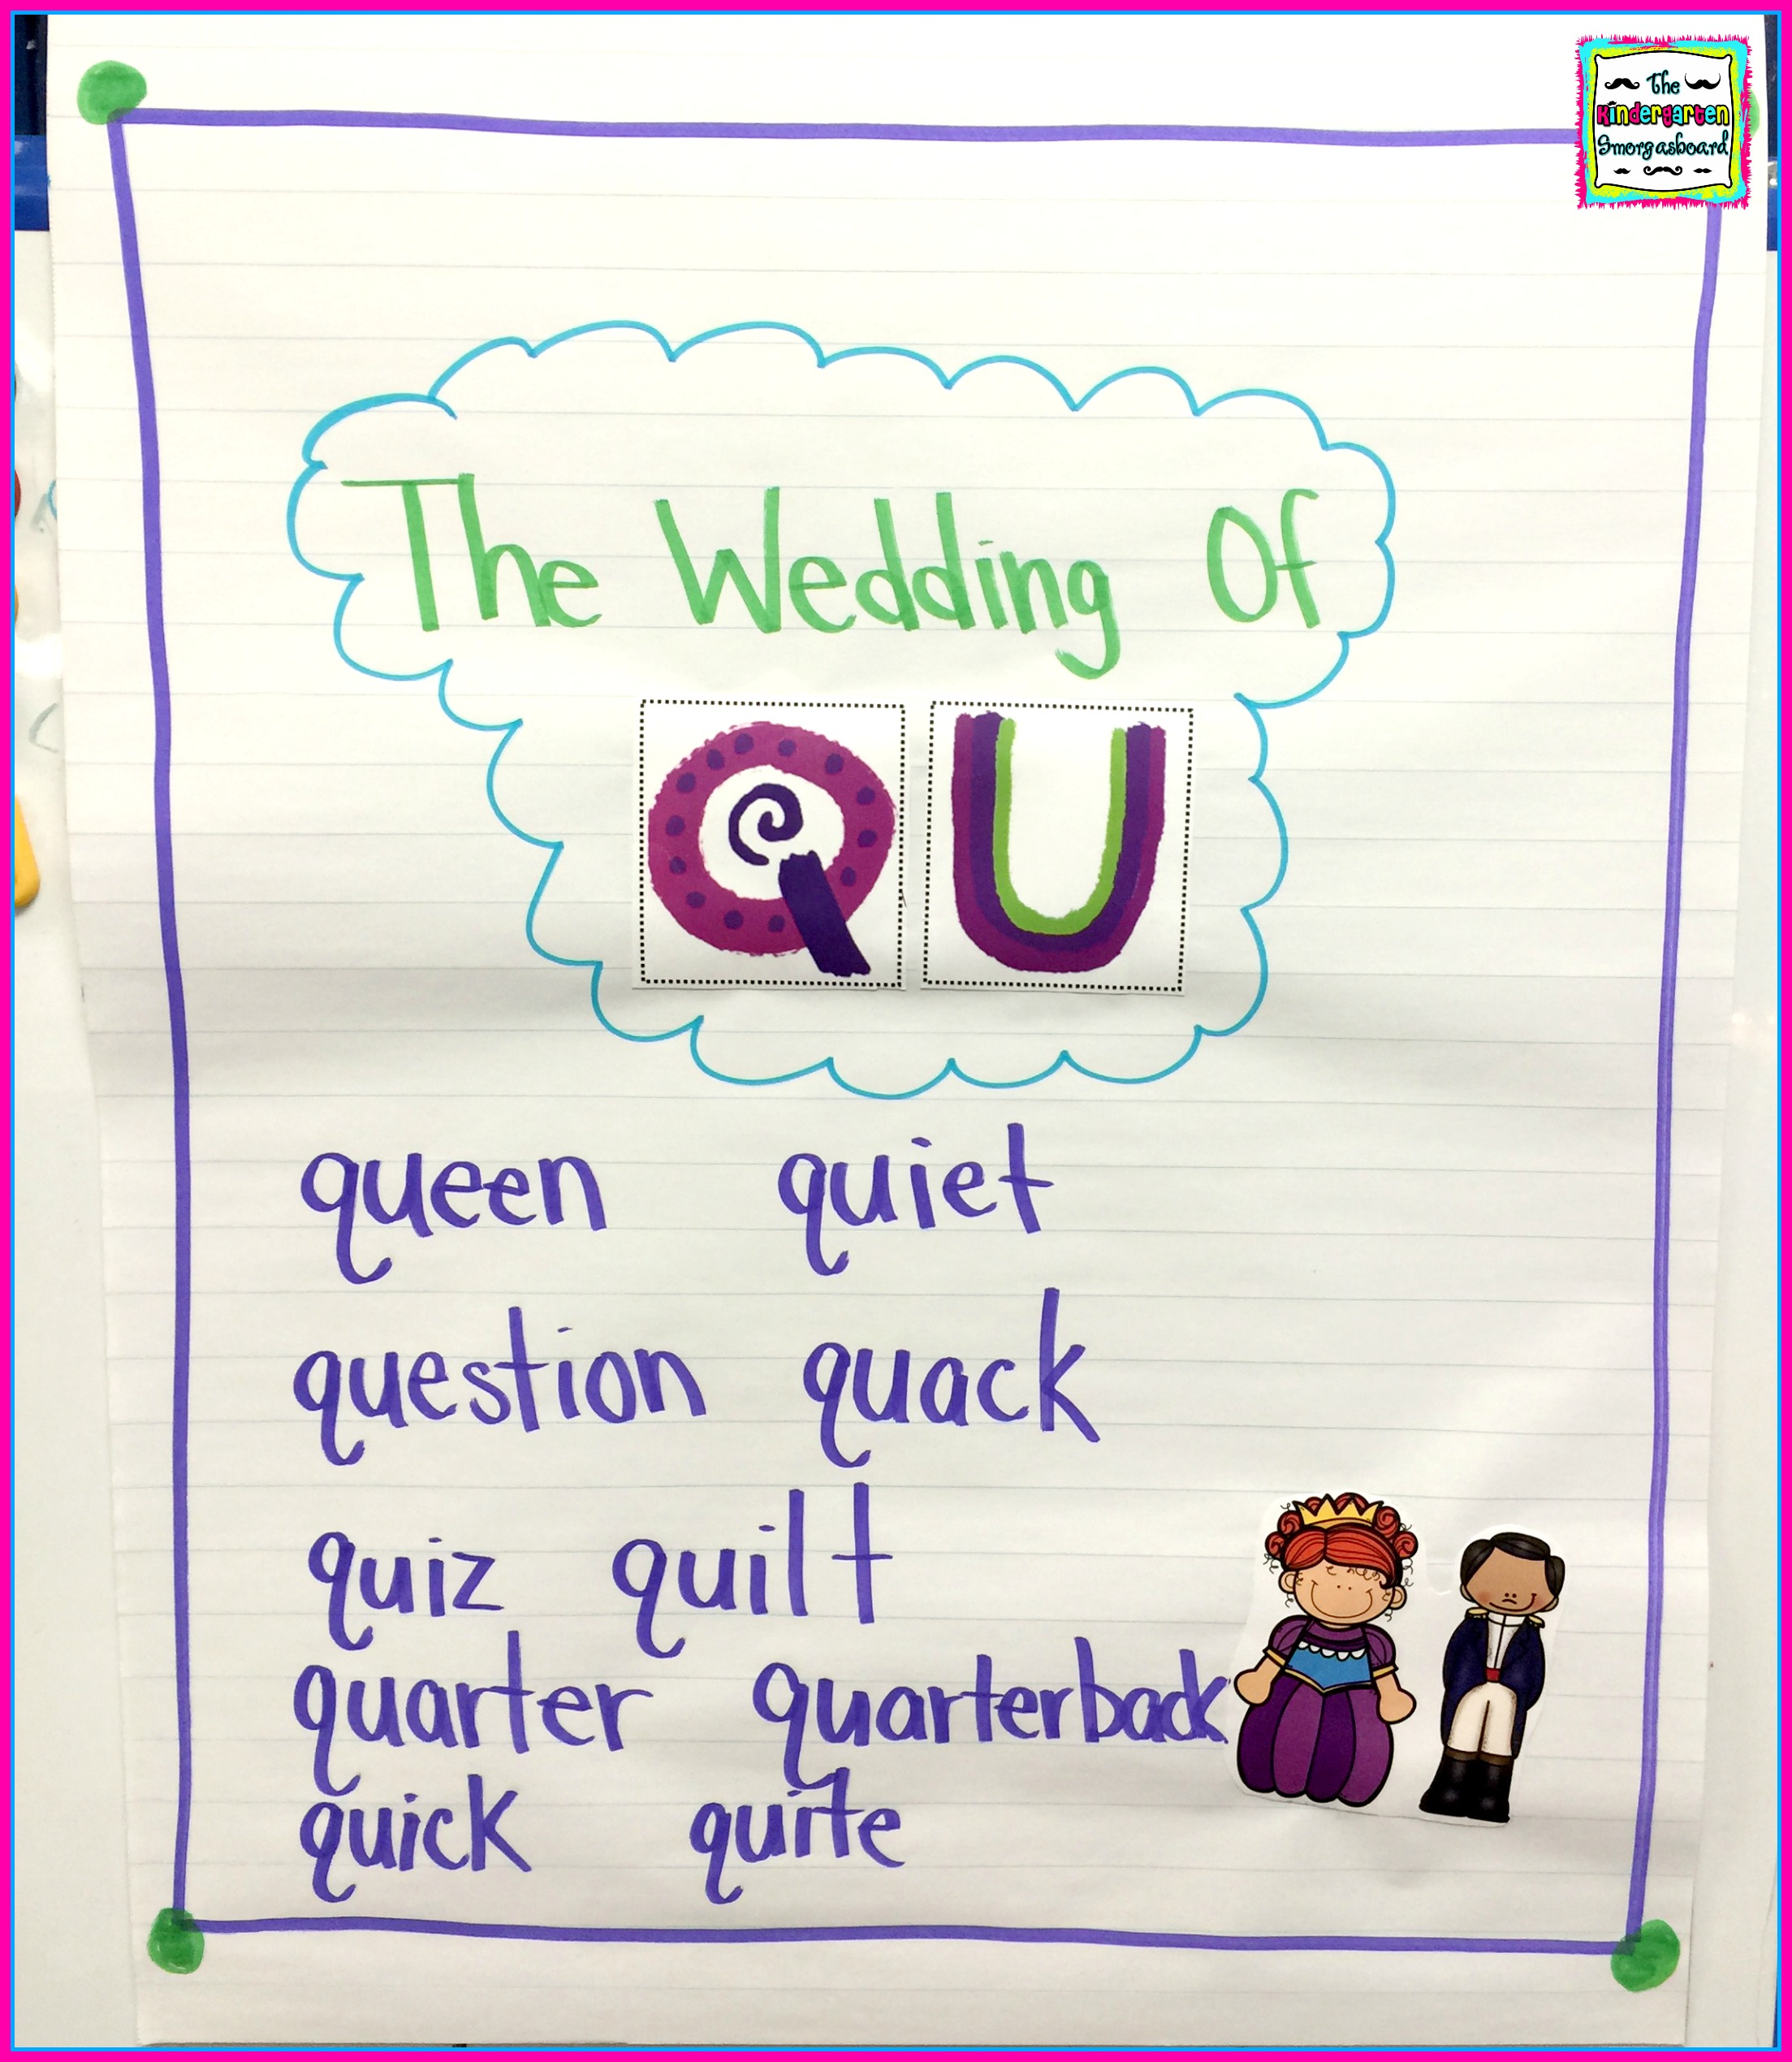 The
Kindergarten
Smorgasboard
The Wedding Of
Q U
queen quiet
question quack
quiz quilt
quarter quarterback
quick quite